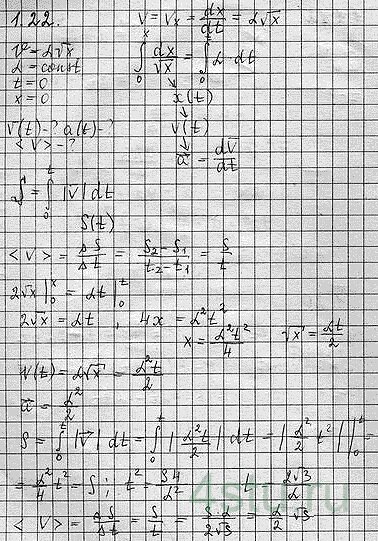 1.22.
V = Vx = dx/dt = α√x
V = α√x
α = const
t = 0
x = 0
∫₀ˣ dx/√x = ∫₀ᵗ α dt
x(t)
V(t)
V(t) - ? a(t) - ?
<V> - ?
a⃗ = dV⃗/dt
S = ∫₀ᵗ |V| dt
S(t)
<V> = ΔS/Δt = (S₂ - S₁)/(t₂ - t₁) = S/t
2√x |₀ˣ = αt |₀ᵗ
2√x = αt , 4x = α²t²
x = α²t²/4 √x = αt/2
V(t) = α√x = α²t/2
a⃗ = α²/2
S = ∫₀ᵗ |V⃗| dt = ∫₀ᵗ |α²t/2| dt = |α²/2 t²| |₀ᵗ =
= α²/4 t² = S ; t² = S4/α² t = 2√S/α
<V> = ΔS/Δt = S/t = S·α/2√S = α/2 √S
4stu.ru